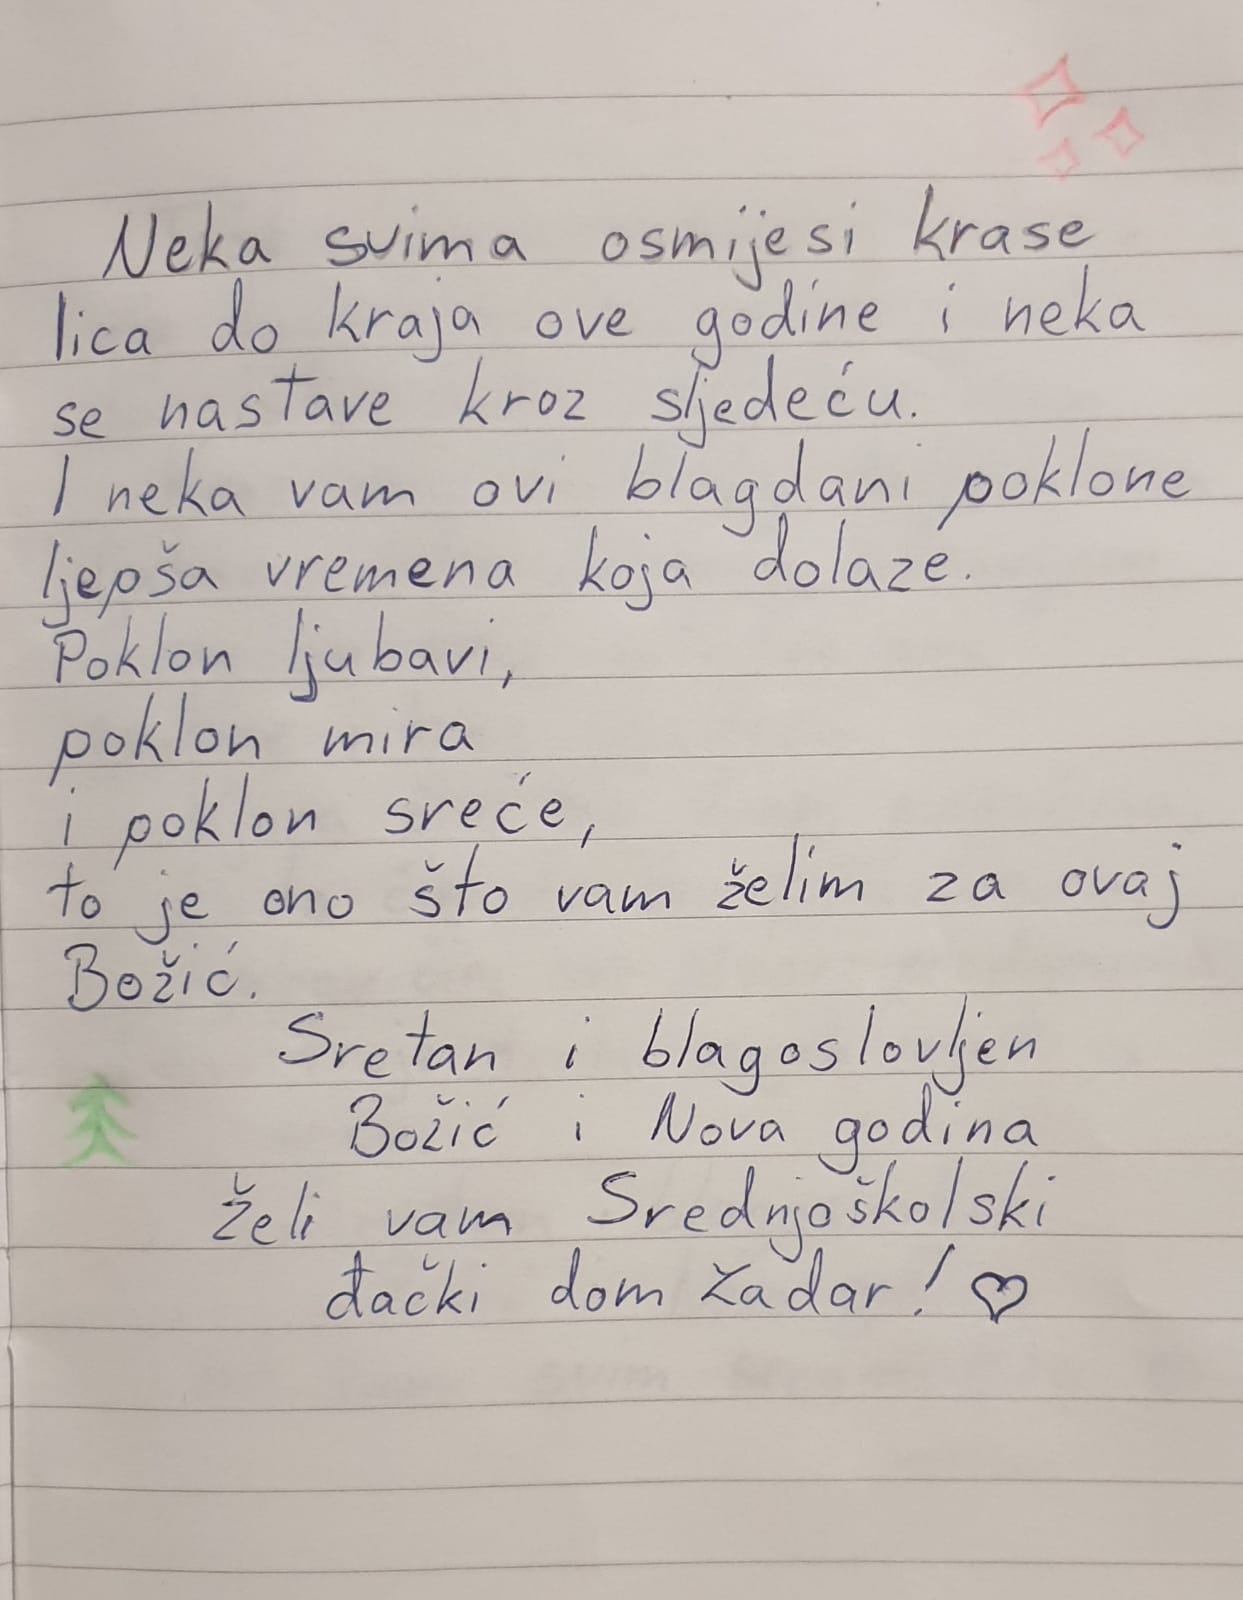 Neka svima osmijesi krase
lica do kraja ove godine i neka
se nastave kroz sljedeću.
I neka vam ovi blagdani poklone
ljepša vremena koja dolaze.
Poklon ljubavi,
poklon mira
i poklon sreće,
to je ono što vam želim za ovaj
Božić.
Sretan i blagoslovljen
Božić i Nova godina
želi vam Srednjoškolski
đački dom Zadar! ♡